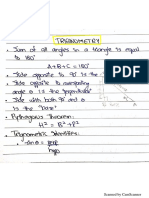 TRIGONOMETRY
• Sum of all angles in a triangle is equal
to 180°
A+B+C = 180°
• Side opposite to 90° is the
• Side opposite to
angle θ is the "perpendicular"
• Side with both 90° and θ
is the "base"
• Pythagoras Theorem:
H² = B² + P²
• Trignometric Identities:
• sin θ = perp
hyp
Scanned by CamScanner